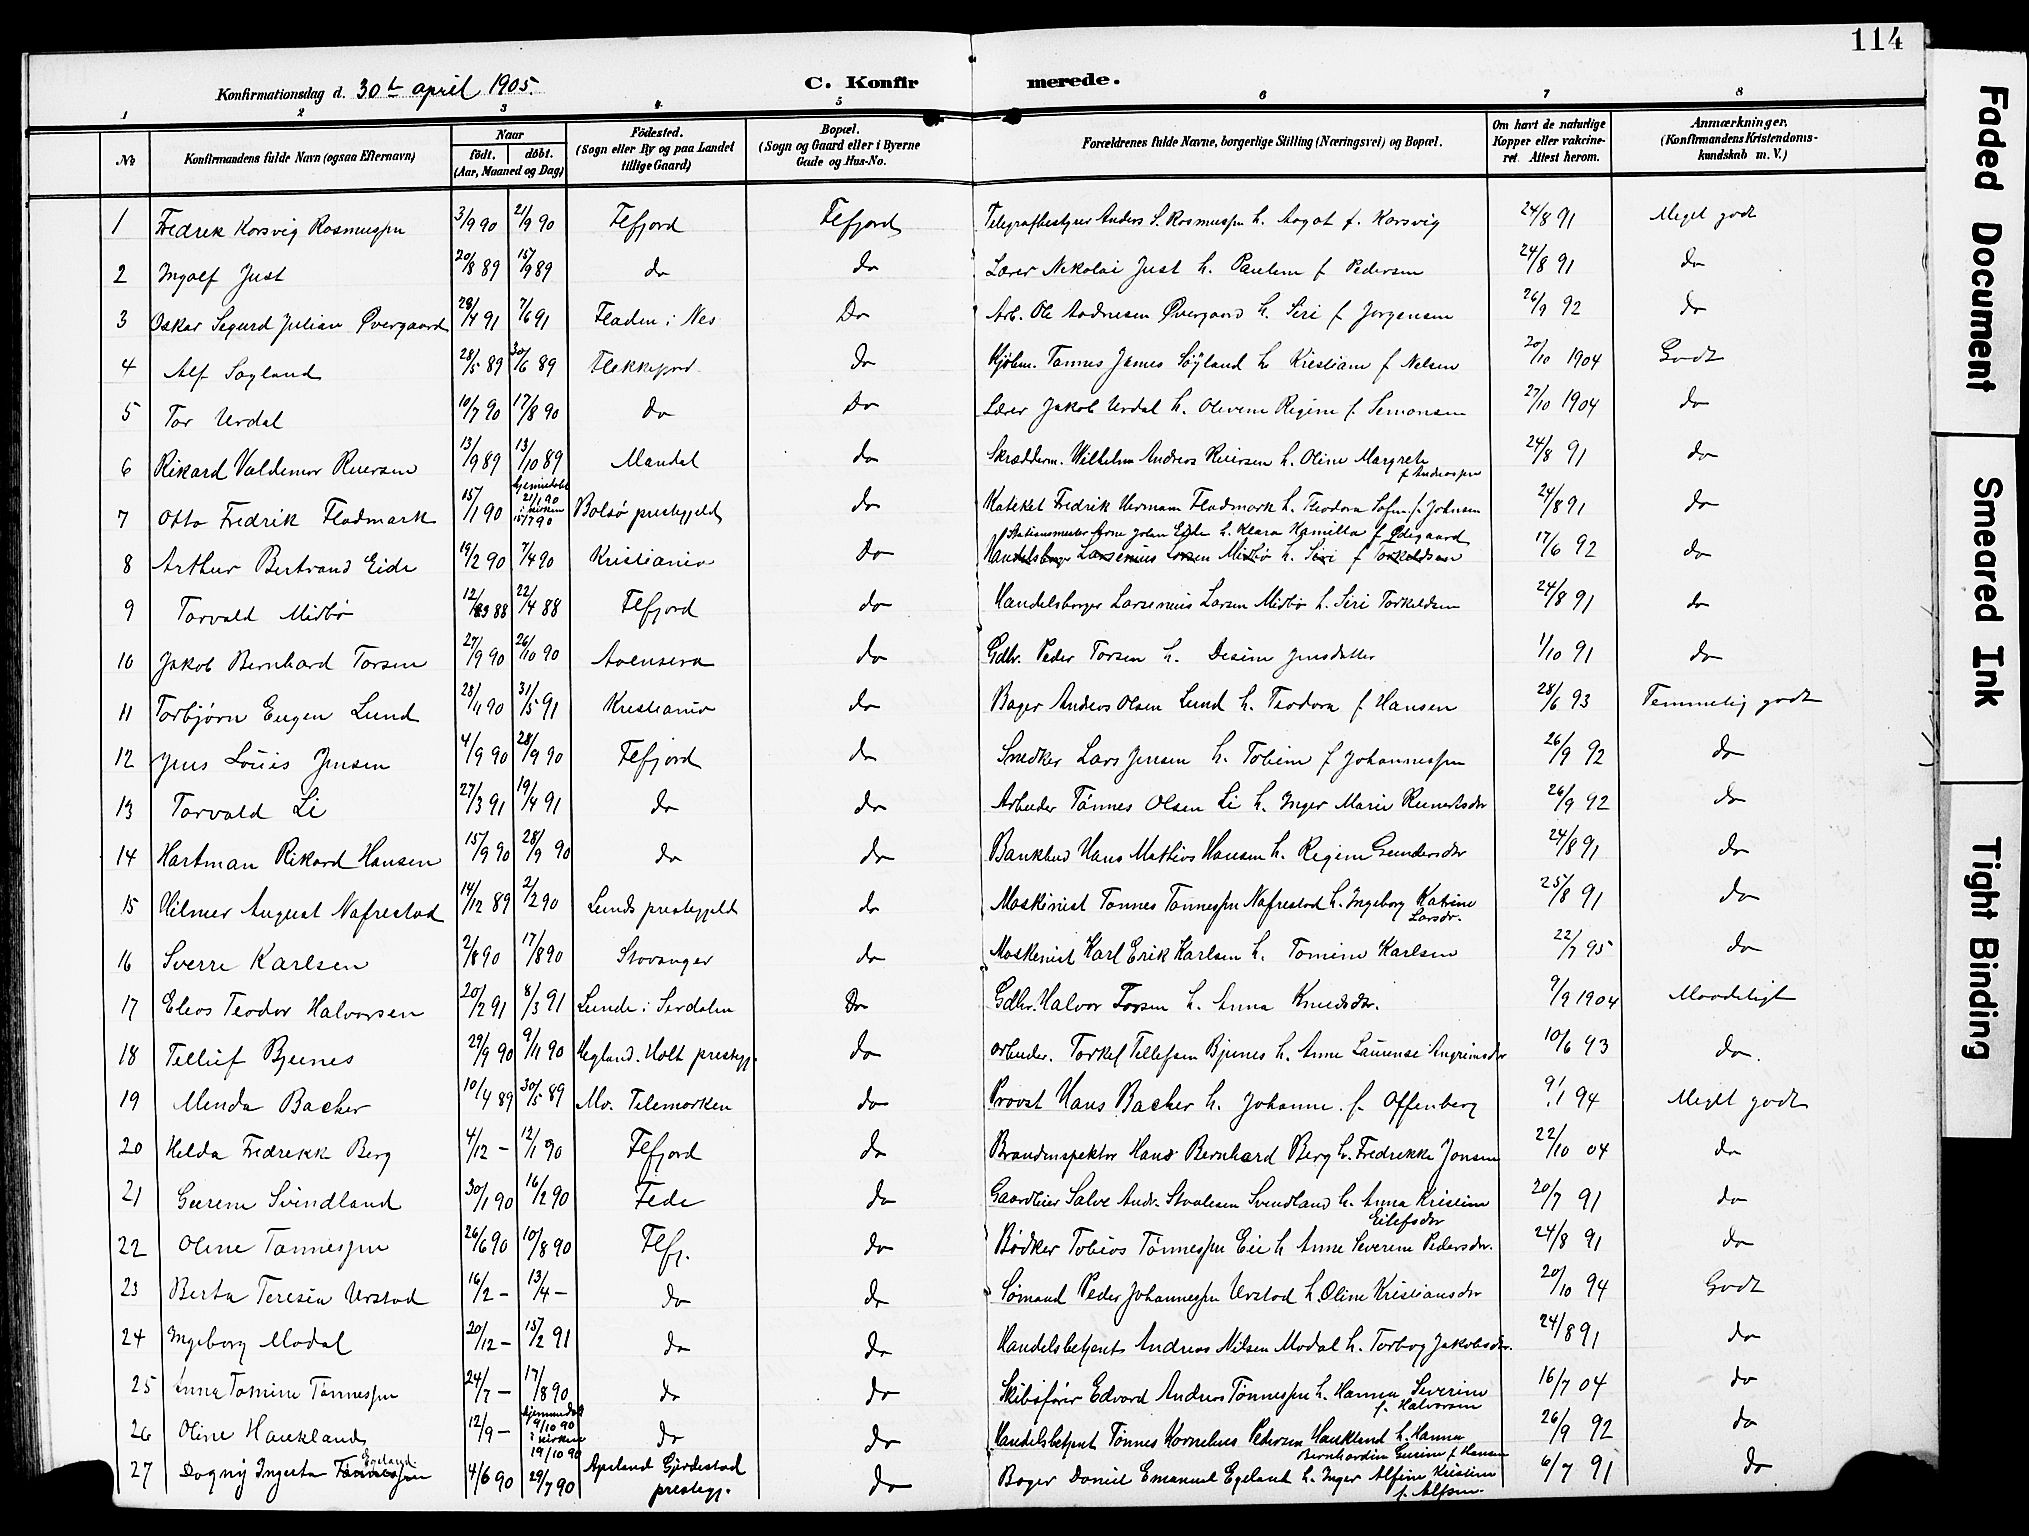 114
Konfirmationsdag d. 30te april 1905.
C. Konfirmerede.
1 2 3 4 5 6 7 8
No
Konfirmandens fulde Navn (ogsaa Efternavn)
Naar
født. døbt.
(Aar, Maaned og Dag)
Fødested.
(Sogn eller By og paa Landet
tillige Gaard)
Bopæl.
(Sogn og Gaard eller i Byerne
Gade og Hus-No.
Forældrenes fulde Navne, borgerlige Stilling (Næringsvei) og Bopæl.
Om havt de naturlige
Kopper eller vakcine-
ret. Attest herom.
Anmærkninger.
(Konfirmandens Kristendoms-
kundskab m. V.)
1 Fredrik Korsvig Rasmussen 3/9 90 21/9 90 Flfjord Flfjord Telegrafbestyrer Anders S. Rasmussen h. Aagot f. Korsvig 24/8 91 Meget godt
2 Ingolf Just 20/8 89 15/9 89 do do Lærer Nikolai Just h. Pauline f Pedersen 24/8 91 do
3 Oskar Sigurd Julian Øvergaard 28/4 91 7/6 91 Fladen i Nes Do Arb. Ole Andresen Øvergaard h. Siri f Jørgensen 26/9 92 do
4 Alf Søyland 28/5 89 30/6 89 Flekkefjord Do Kjøbm. Tønnes James Søyland h Kristiane f Nelsen 20/10 1904 Godt
5 Tor Urdal 10/7 90 17/8 90 do Do Lærer Jakob Urdal h. Olevine Regine f. Simonsen 27/10 1904 do
6 Rikard Valdemar Reiersen 13/9 89 13/10 89 Mandal do Skrædderm. Wilhelm Andreas Reiersen h. Oline Margrete f Andreassen 24/8 91 do
7 Otto Fredrik Fladmark 15/1 90 hjemmedøbt 21/1 90 i kirken 15/7 90 Bolsø prestegjeld do Kateket Fredrik Herman Fladmark h. Teodora Sofie f. Johnsen 24/8 91 do
8 Arthur Bertrand Eide 19/2 90 7/4 90 Kristiania Do Stationsmester Arne Johan Eide h. Klara Kamilla f Ødegaard
Handelsborger Larsenius Larsen Midbø h. Siri f Torkeldsen 17/6 92 do
9 Torvald Midbø 12/3 88 22/4 88 Flfjord do Handelsborger Larsenius Larsen Midbø h. Siri Torkeldsen 24/8 91 do
10 Jakob Bernhard Torsen 27/9 90 26/10 90 do Gdbr. Peder Torsen h. Desine Jensdatter 1/10 91 do
11 Torbjørn Eugen Lund 28/4 90 31/5 91 Kristiania do Bager Andreas Olsen Lund h. Teodora f Hansen 28/6 93 Temmelig godt
12 Jens Louis Jensen 4/9 90 28/9 90 Flfjord do Snedker Lars Jensen h. Tobine f Johannessen 26/9 92 do
13 Torvald Li 27/3 91 19/4 91 do do Arbeider Tønnes Olsen Li h. Inger Marie Reinertsdr 26/9 92 do
14 Hartman Rikard Hansen 15/9 90 28/9 90 do do Bankbud Hans Mathias Hansen h. Regine Gundersdr 24/8 91 do
15 Hilmer August Nafrestad 14/12 89 2/2 90 Lunds prestegjeld do Maskinist Tønnes Tønnessen Nafrestad h. Ingeborg Katrine Larsdr. 25/8 91 do
16 Sverre Karlsen 2/8 90 17/8 90 Stavanger do Maskinist Karl Erik Karlsen h. Tomine Karlsen 22/7 95 do
17 Elias Teodor Halvorsen 20/2 91 8/3 91 Lunde i Sirdalen Do Gdbr. Halvor Torsen h. Anna Knudsdr. 9/9 1904 Maadeligt
18 Tellief Bjenes 29/9 90 9/11 90 Hegland. Holt prestegj. do arbeider. Torkel Tellefsen Bjenes h. Anne Laurense Angrimsdr 10/6 93 do.
19 Menda Bacher 10/4 89 30/5 89 Mo. Telemarken do Provst Hans Bacher h. Johanne. f. Offenberg 9/1 94 Meget godt
20 Helda Fredrikk Berg 4/12 - 12/1 90 Flfjord do Brandinspektør Hans Bernhard Berg h. Fredrikke Jonsen 22/10 04 do
21 Geerine Svindland 30/1 90 16/2 90 Fede do Gaardeier Salve Andr. Staalesen Svindland h. Anna Kristine Eilefsdr 20/7 91 do
22 Oline Tønnessen 26/6 90 10/8 90 Flfj. do Bødker Tobias Tønnessen Eie h Anne Severine Pedersdr. 24/8 91 do
23 Berta Teresia Urstad 16/2 - 13/4 - do do Sømand Peder Johannessen Urstad h. Oline Kristiansdr 20/10 94 Godt
24 Ingeborg Modal 20/12 - 15/2 91 do do Handelsbetjent Andreas Nilsen Modal h. Torborg Jakobsdr. 24/8 91 do
25 Anna Tomine Tønnessen 24/7 - 17/8 90 do do Skibsfører Edvard Andreas Tønnessen h. Hanna Severine f. Halvorsen 16/7 04 do
26 Oline Haukland 12/9 - hjemmedøbt 9/10 90 i kirken 19/10 90 do do Handelsbetjent Tønnes Kornelius Pedersen Haukland h. Hanna Bernhardine Gurine f Hansen 26/9 92 do
27 Dagny Ingerta Tønnessen Egeland 4/6 90 29/7 90 Apeland Gjerdestad prestegj. do Bager Daniel Emanuel Egeland h Inger Alfine Kristine f. Alfsen 6/7 91 do
Faded Document
Smeared Ink
Tight Binding